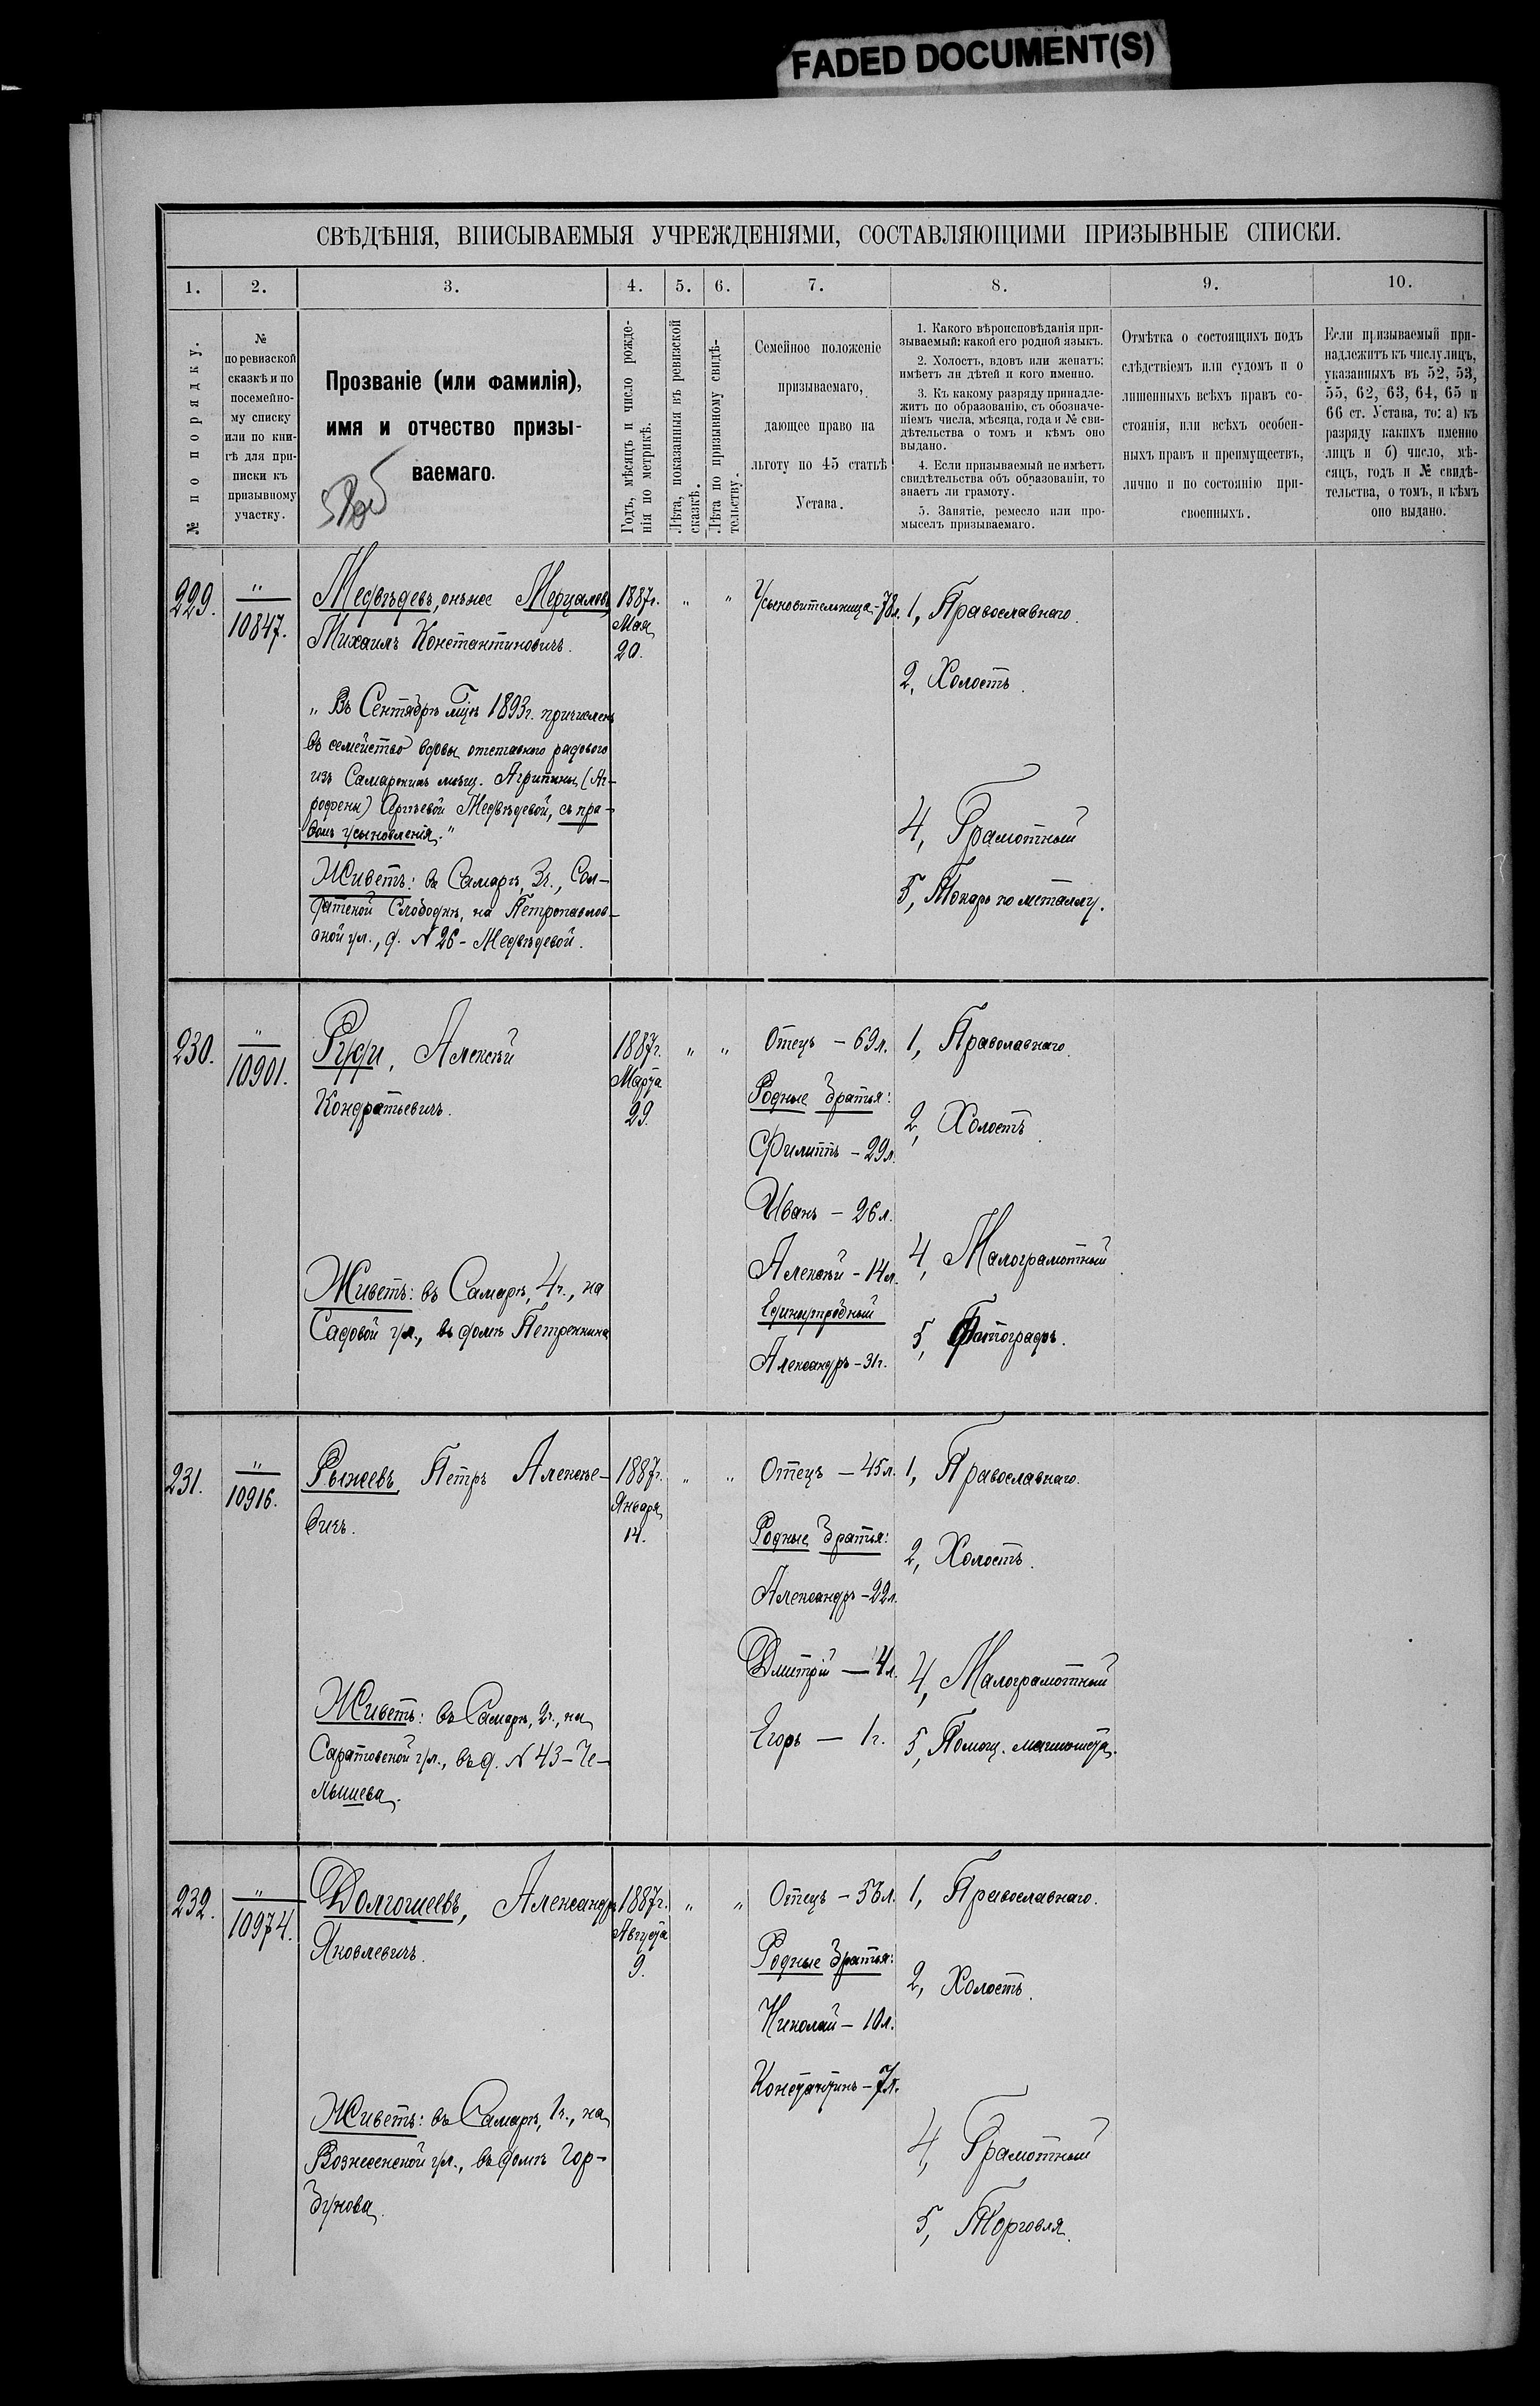 FADED DOCUMENT(S)
СВѢДѢНІЯ, ВПИСЫВАЕМЫЯ УЧРЕЖДЕНІЯМИ, СОСТАВЛЯЮЩИМИ ПРИЗЫВНЫЕ СПИСКИ.
1. 2. 3. 4. 5. 6. 7. 8. 9. 10.
№ по порядку.
№
по ревизской
сказкѣ и по
посемейно-
му списку
или по кни-
гѣ для при-
писки къ
призывному
участку.
Прозваніе (или фамилія),
имя и отчество призы-
ваемаго.
Годъ, мѣсяцъ и число рожде-
нія по метрикѣ.
Лѣта, показанныя въ ревизской
сказкѣ.
Лѣта по призывному свидѣ-
тельству.
Семейное положеніе
призываемаго,
дающее право на
льготу по 45 статьѣ
Устава.
1. Какого вѣроисповѣданія при-
зываемый: какой его родной языкъ.
2. Холостъ, вдовъ или женатъ:
имѣетъ ли дѣтей и кого именно.
3. Къ какому разряду принадле-
житъ по образованію, съ обозначе-
ніемъ числа, мѣсяца, года и № сви-
дѣтельства о томъ и кѣмъ оно
выдано.
4. Если призываемый не имѣетъ
свидѣтельства объ образованіи, то
знаетъ ли грамоту.
5. Занятіе, ремесло или про-
мыселъ призываемаго.
Отмѣтка о состоящихъ подъ
слѣдствіемъ или судомъ и о
лишенныхъ всѣхъ правъ со-
стоянія, или всѣхъ особен-
ныхъ правъ и преимуществъ,
лично и по состоянію при-
своенныхъ.
Если призываемый при-
надлежитъ къ числу лицъ,
указанныхъ въ 52, 53,
55, 62, 63, 64, 65 и
66 ст. Устава, то: а) къ
разряду какихъ именно
лицъ и б) число, мѣ-
сяцъ, годъ и № свидѣ-
тельства, о томъ, и кѣмъ
оно выдано.
229.
"
10847.
Медвѣдевъ, онъ же Мерцаловъ
Михаилъ Константиновичъ.
„Въ Сентябрѣ м-цѣ 1893г. причисленъ
въ семейство вдовы отставного рядового
изъ Самарскихъ мѣщ. Агрипины (Аг-
рофены) Медвѣдевой, съ пра-
вомъ усыновленія."
Живетъ: въ Самарѣ, 3ч., Сол-
датской Слободкѣ, на Петропавлов-
ской ул., д. N 26 - Медвѣдевой.
1887г.
Мая
20.
" "
Усыновительница - 78л.
1, Православнаго.
2, Холостъ.
4, Грамотный
5, Токарь по металлу.
230.
"
10901.
Руди, Алексѣй
Кондратьевичъ.
Живетъ: въ Самарѣ, 4ч., на
Садовой ул., въ домѣ Петренкина
1887г.
Марта
29.
" "
Отецъ - 69л.
Родные братья:
Филиппъ - 29л.
Иванъ - 26л.
Алексѣй - 14л.
Единоутробный
Александръ - 31г.
1, Православнаго.
2, Холостъ.
4, Малограмотный
5, Фотографъ.
231.
"
10916.
Рыжевъ Петръ Алексѣе-
вичъ.
Живетъ: въ Самарѣ, 2ч., на
Саратовской ул., въ д. N 43 - Че-
лышева.
1887г.
Января
14.
" "
Отецъ - 45л.
Родные братья:
Александръ - 22л.
Дмитрій - 4л.
Егоръ - 1г.
1, Православнаго.
2, Холостъ.
4, Малограмотный
5, Помощ. машиниста.
232.
"
10974.
Долгошеевъ, Александръ
Яковлевичъ.
Живетъ: въ Самарѣ, 1ч., на
Вознесенской ул., въ домѣ Гор-
бунова.
1887г.
Августа
9.
" "
Отецъ - 56л.
Родные братья:
Николай - 10л.
Константинъ - 7л.
1, Православнаго.
2, Холостъ.
4, Грамотный
5, Торговля.